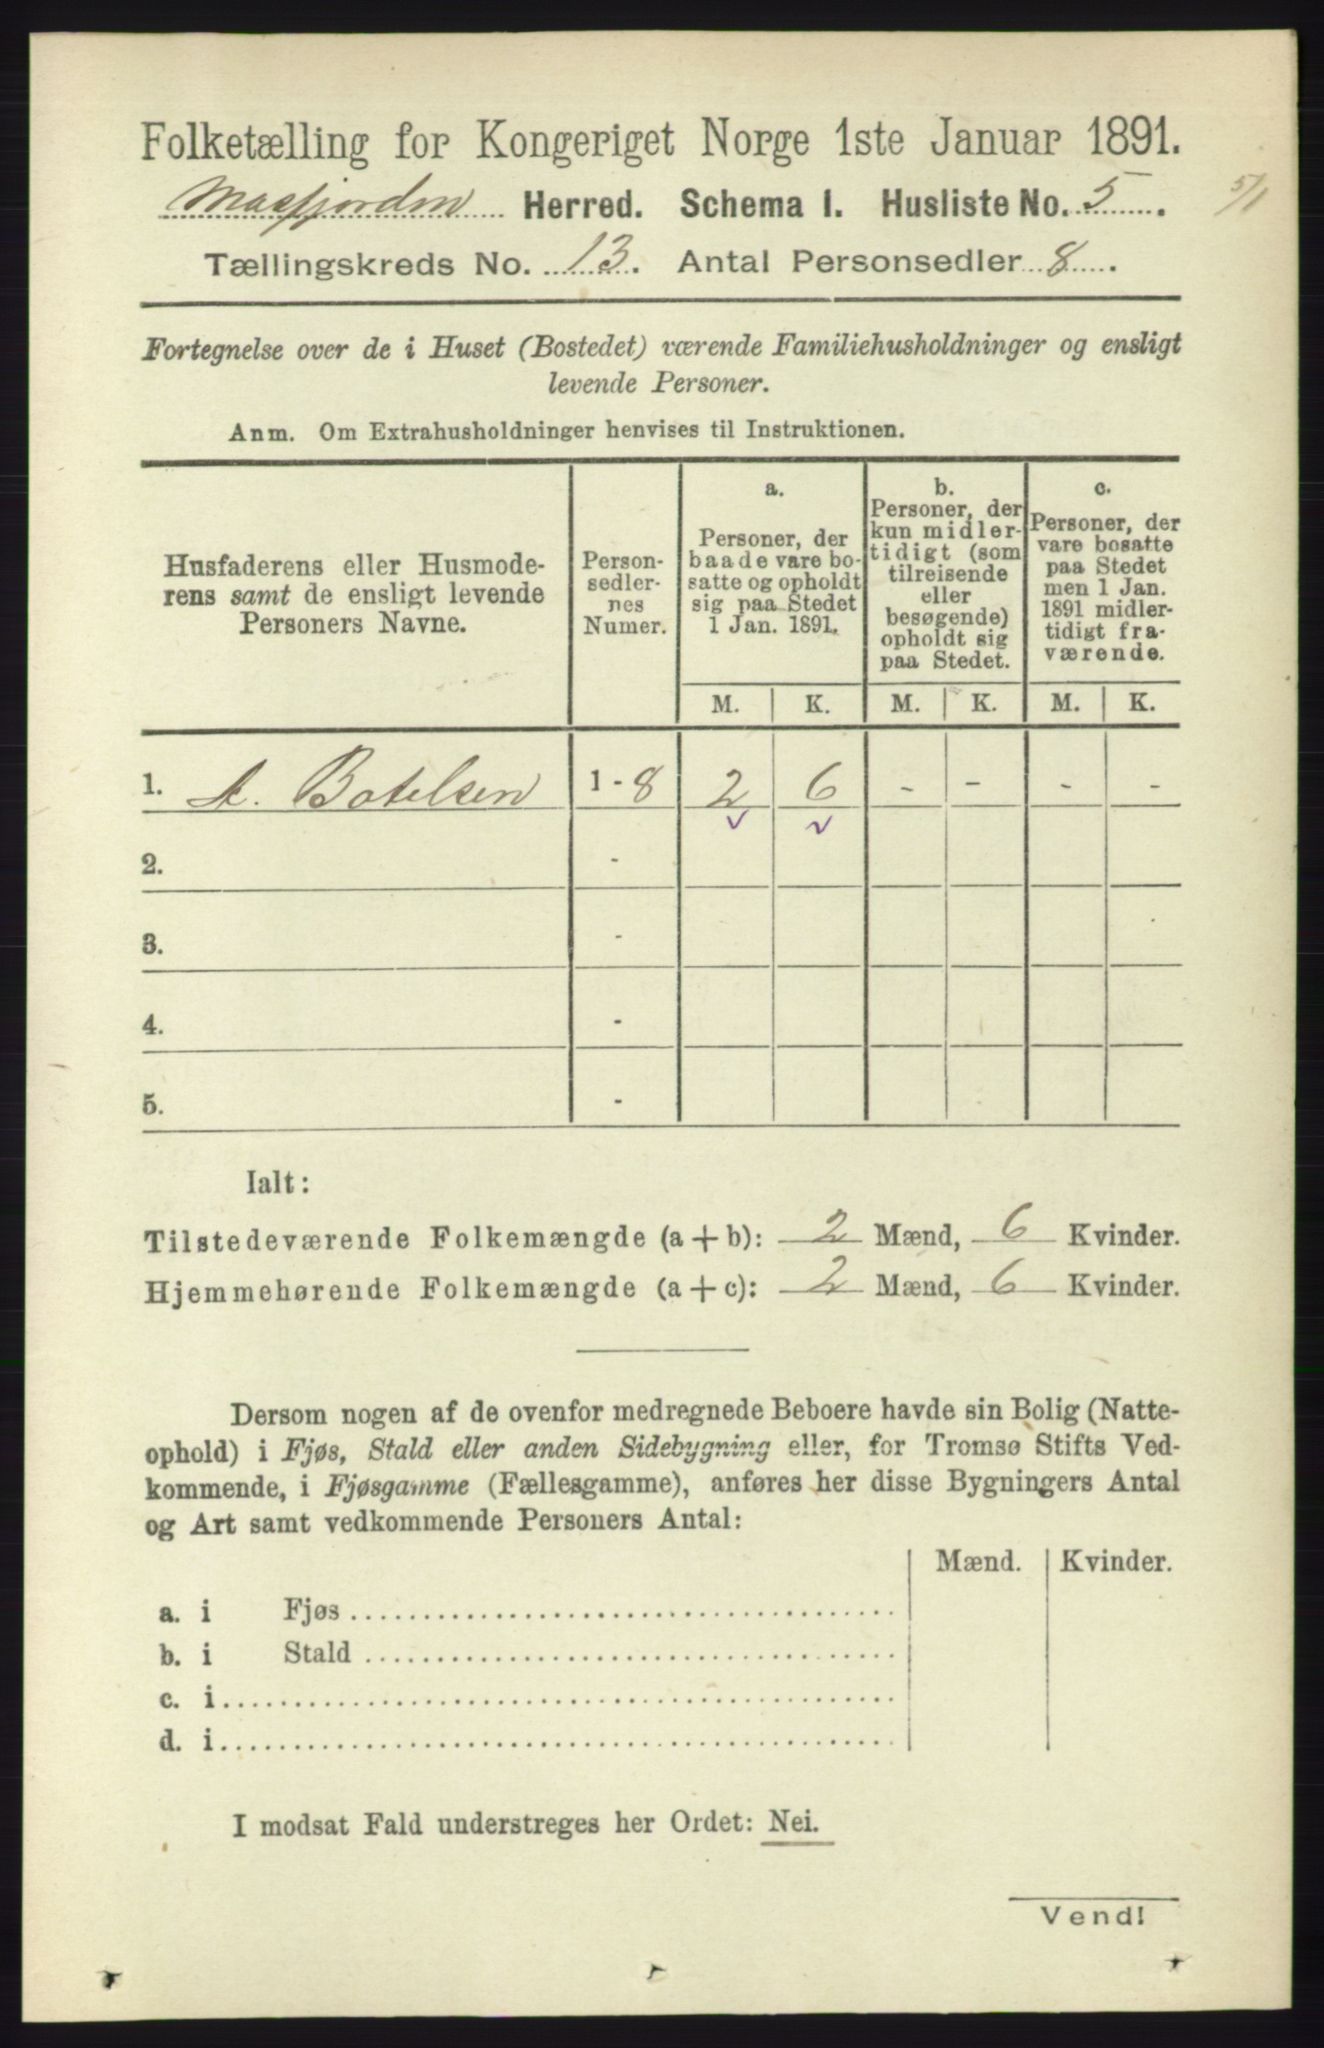 Folketælling for Kongeriget Norge 1ste Januar 1891.
Masfjorden Herred. Schema I. Husliste No. 5.
5/1
Tællingskreds No. 13. Antal Personsedler 8.
Fortegnelse over de i Huset (Bostedet) værende Familiehusholdninger og ensligt
levende Personer.
Anm. Om Extrahusholdninger henvises til Instruktionen.
Husfaderens eller Husmode-
rens samt de ensligt levende
Personers Navne.
Person-
sedler-
nes
Numer.
a.
Personer, der
baade vare bo-
satte og opholdt
sig paa Stedet
1 Jan. 1891.
b.
Personer, der
kun midler-
tidigt (som
tilreisende
eller
besøgende)
opholdt sig
paa Stedet.
c.
Personer, der
vare bosatte
paa Stedet
men 1 Jan.
1891 midler-
tidigt fra-
værende.
M. K. M. K. M. K.
1. A. Botelsen 1 - 8 2 6 - - - -
2. -
3. -
4. -
5. -
Ialt:
Tilstedeværende Folkemængde (a + b): 2 Mænd, 6 Kvinder.
Hjemmehørende Folkemængde (a + c): 2 Mænd, 6 Kvinder.
Dersom nogen af de ovenfor medregnede Beboere havde sin Bolig (Natte-
ophold) i Fjøs, Stald eller anden Sidebygning eller, for Tromsø Stifts Ved-
kommende, i Fjøsgamme (Fællesgamme), anføres her disse Bygningers Antal
og Art samt vedkommende Personers Antal:
Mænd. Kvinder.
a. i Fjøs
b. i Stald
c. i
d. i
I modsat Fald understreges her Ordet: Nei.
Vend!